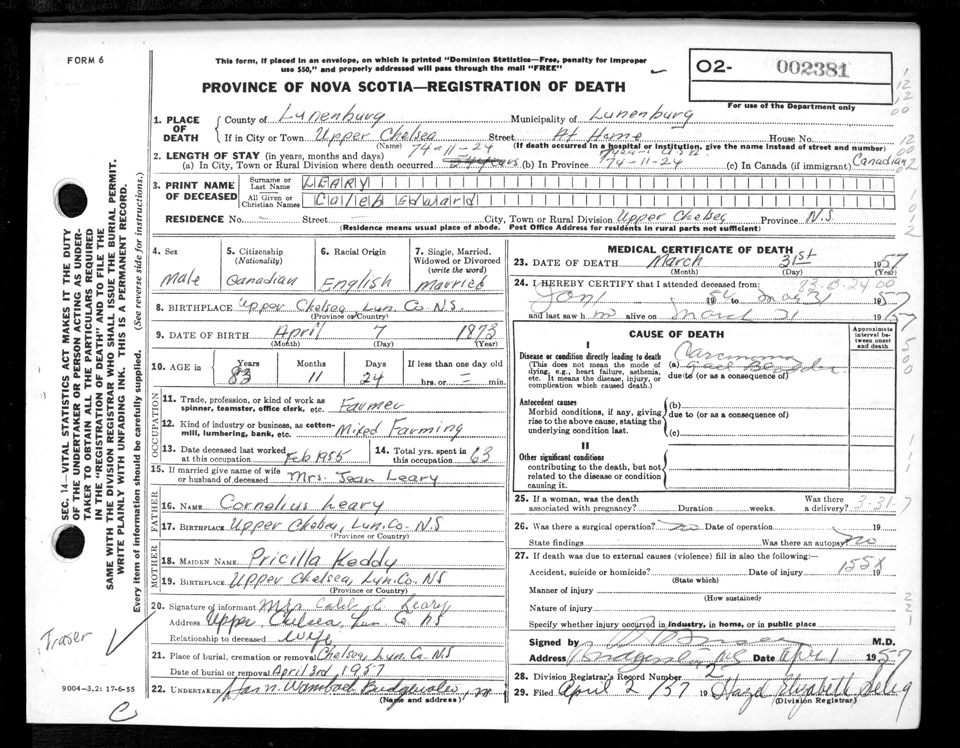 FORM 6
This form, if placed in an envelope, on which is printed "Dominion Statistics—Free, penalty for improper
use $50," and properly addressed will pass through the mail "FREE"
PROVINCE OF NOVA SCOTIA—REGISTRATION OF DEATH
O2- 002381
For use of the Department only
1. PLACE OF DEATH
County of Lunenburg Municipality of Lunenburg
If in City or Town Upper Chelsea Street At Home House No.
(Name) (If death occurred in a hospital or institution, give the name instead of street and number)
2. LENGTH OF STAY (in years, months and days) 74-11-24
(a) In City, Town or Rural Division where death occurred (b) In Province 74-11-24 (c) In Canada (if immigrant) Canadian
3. PRINT NAME OF DECEASED
Surname or Last Name LEARY
All Given or Christian Names Caleb Edward
RESIDENCE No. — Street — City, Town or Rural Division Upper Chelsea Province N.S.
(Residence means usual place of abode. Post Office Address for residents in rural parts not sufficient)
4. Sex Male
5. Citizenship (Nationality) Canadian
6. Racial Origin English
7. Single, Married, Widowed or Divorced (write the word) Married
8. BIRTHPLACE Upper Chelsea Lun. Co. N.S.
(Province or Country)
9. DATE OF BIRTH April 7 1873
(Month) (Day) (Year)
10. AGE in Years 83 Months 11 Days 24 If less than one day old hrs. or — min.
OCCUPATION
11. Trade, profession, or kind of work as spinner, teamster, office clerk, etc. Farmer
12. Kind of industry or business, as cotton-mill, lumbering, bank, etc. Mixed Farming
13. Date deceased last worked at this occupation Feb 1955
14. Total yrs. spent in this occupation 63
15. If married give name of wife or husband of deceased Mrs. Jean Leary
FATHER
16. NAME Cornelius Leary
17. BIRTHPLACE Upper Chelsea, Lun. Co. N.S
(Province or Country)
MOTHER
18. MAIDEN NAME Pricilla Keddy
19. BIRTHPLACE Upper Chelsea, Lun. Co. NS
(Province or Country)
20. Signature of informant Mrs Caleb E. Leary
Address Upper Chelsea, Lun. Co NS
Relationship to deceased wife
21. Place of burial, cremation or removal Chelsea, Lun. Co. N.S
Date of burial or removal April 3rd, 1957
22. UNDERTAKER Bridgewater
(Name and address)
MEDICAL CERTIFICATE OF DEATH
23. DATE OF DEATH March 31st 1957
(Month) (Day) (Year)
24. I HEREBY CERTIFY that I attended deceased from:
1956 to 31 1957
and last saw him alive on March 31 1957
CAUSE OF DEATH
Approximate interval between onset and death
I
Disease or condition directly leading to death
(This does not mean the mode of dying, e.g., heart failure, asthenia, etc. It means the disease, injury, or complication which caused death.)
Carcinoma
(a)
due to (or as a consequence of)
Antecedent causes
Morbid conditions, if any, giving rise to the above cause, stating the underlying condition last.
(b)
due to (or as a consequence of)
(c)
II
Other significant conditions
contributing to the death, but not related to the disease or condition causing it.
25. If a woman, was the death associated with pregnancy? Duration weeks. Was there a delivery? 3-31-7
26. Was there a surgical operation? no Date of operation 19
State findings Was there an autopsy? no
27. If death was due to external causes (violence) fill in also the following:—
Accident, suicide or homicide? Date of injury 19
155X
(State which)
Manner of injury
(How sustained)
Nature of injury
Specify whether injury occurred in industry, in home, or in public place
Signed by M.D.
Address Bridgewater NS Date Apr 1 1957
28. Division Registrar's Record Number 12
29. Filed April 2/57 19 Hazel Elizabeth Selig
(Division Registrar)
SEC. 14—VITAL STATISTICS ACT MAKES IT THE DUTY
OF THE UNDERTAKER OR PERSON ACTING AS UNDER-
TAKER TO OBTAIN ALL THE PARTICULARS REQUIRED
IN THE "REGISTRATION OF DEATH" AND TO FILE THE
SAME WITH THE DIVISION REGISTRAR WHO SHALL ISSUE THE BURIAL PERMIT.
WRITE PLAINLY WITH UNFADING INK. THIS IS A PERMANENT RECORD.
Every item of information should be carefully supplied. (See reverse side for instructions.)
Fraser
9004-3.2: 17-6-55
C